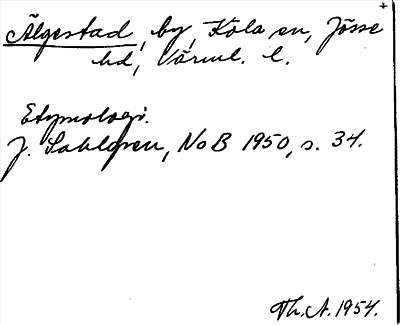 +
Älgestad, by, Köla sn, Jösse
hd, Värml. l.
Etymologi.
J. Sahlgren, NoB 1950, s. 34.
Th. A. 1954.